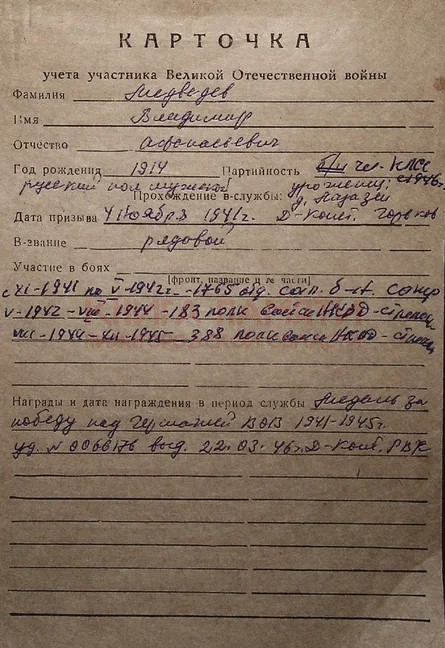 КАРТОЧКА
учета участника Великой Отечественной войны
Фамилия Медведев
Имя Владимир
Отчество Афонасьевич
Год рождения 1914 Партийность б/п чл. КПСС
русский пол мужской уроженец с 1946г.
Прохождение в-службы: д.
Дата призыва 4 Ноября 1941г. Д-Конст. горвк
В-звание рядовой
Участие в боях
[фронт, название и № части]
с XI-1941 по V-1942г. - 1765 отд. сап. б-н.
V-1942 - VIII - 1944 - 183 полк войск НКВД - стрелец
VIII-1944-XII-1945 - 388 полк войск НКВД - стрелец
Награды и дата награждения в период службы Медаль за
победу над Германией ВОВ 1941-1945г.
уд. № 0066176 выд. 22.03.46г. Д-Конст. РВК